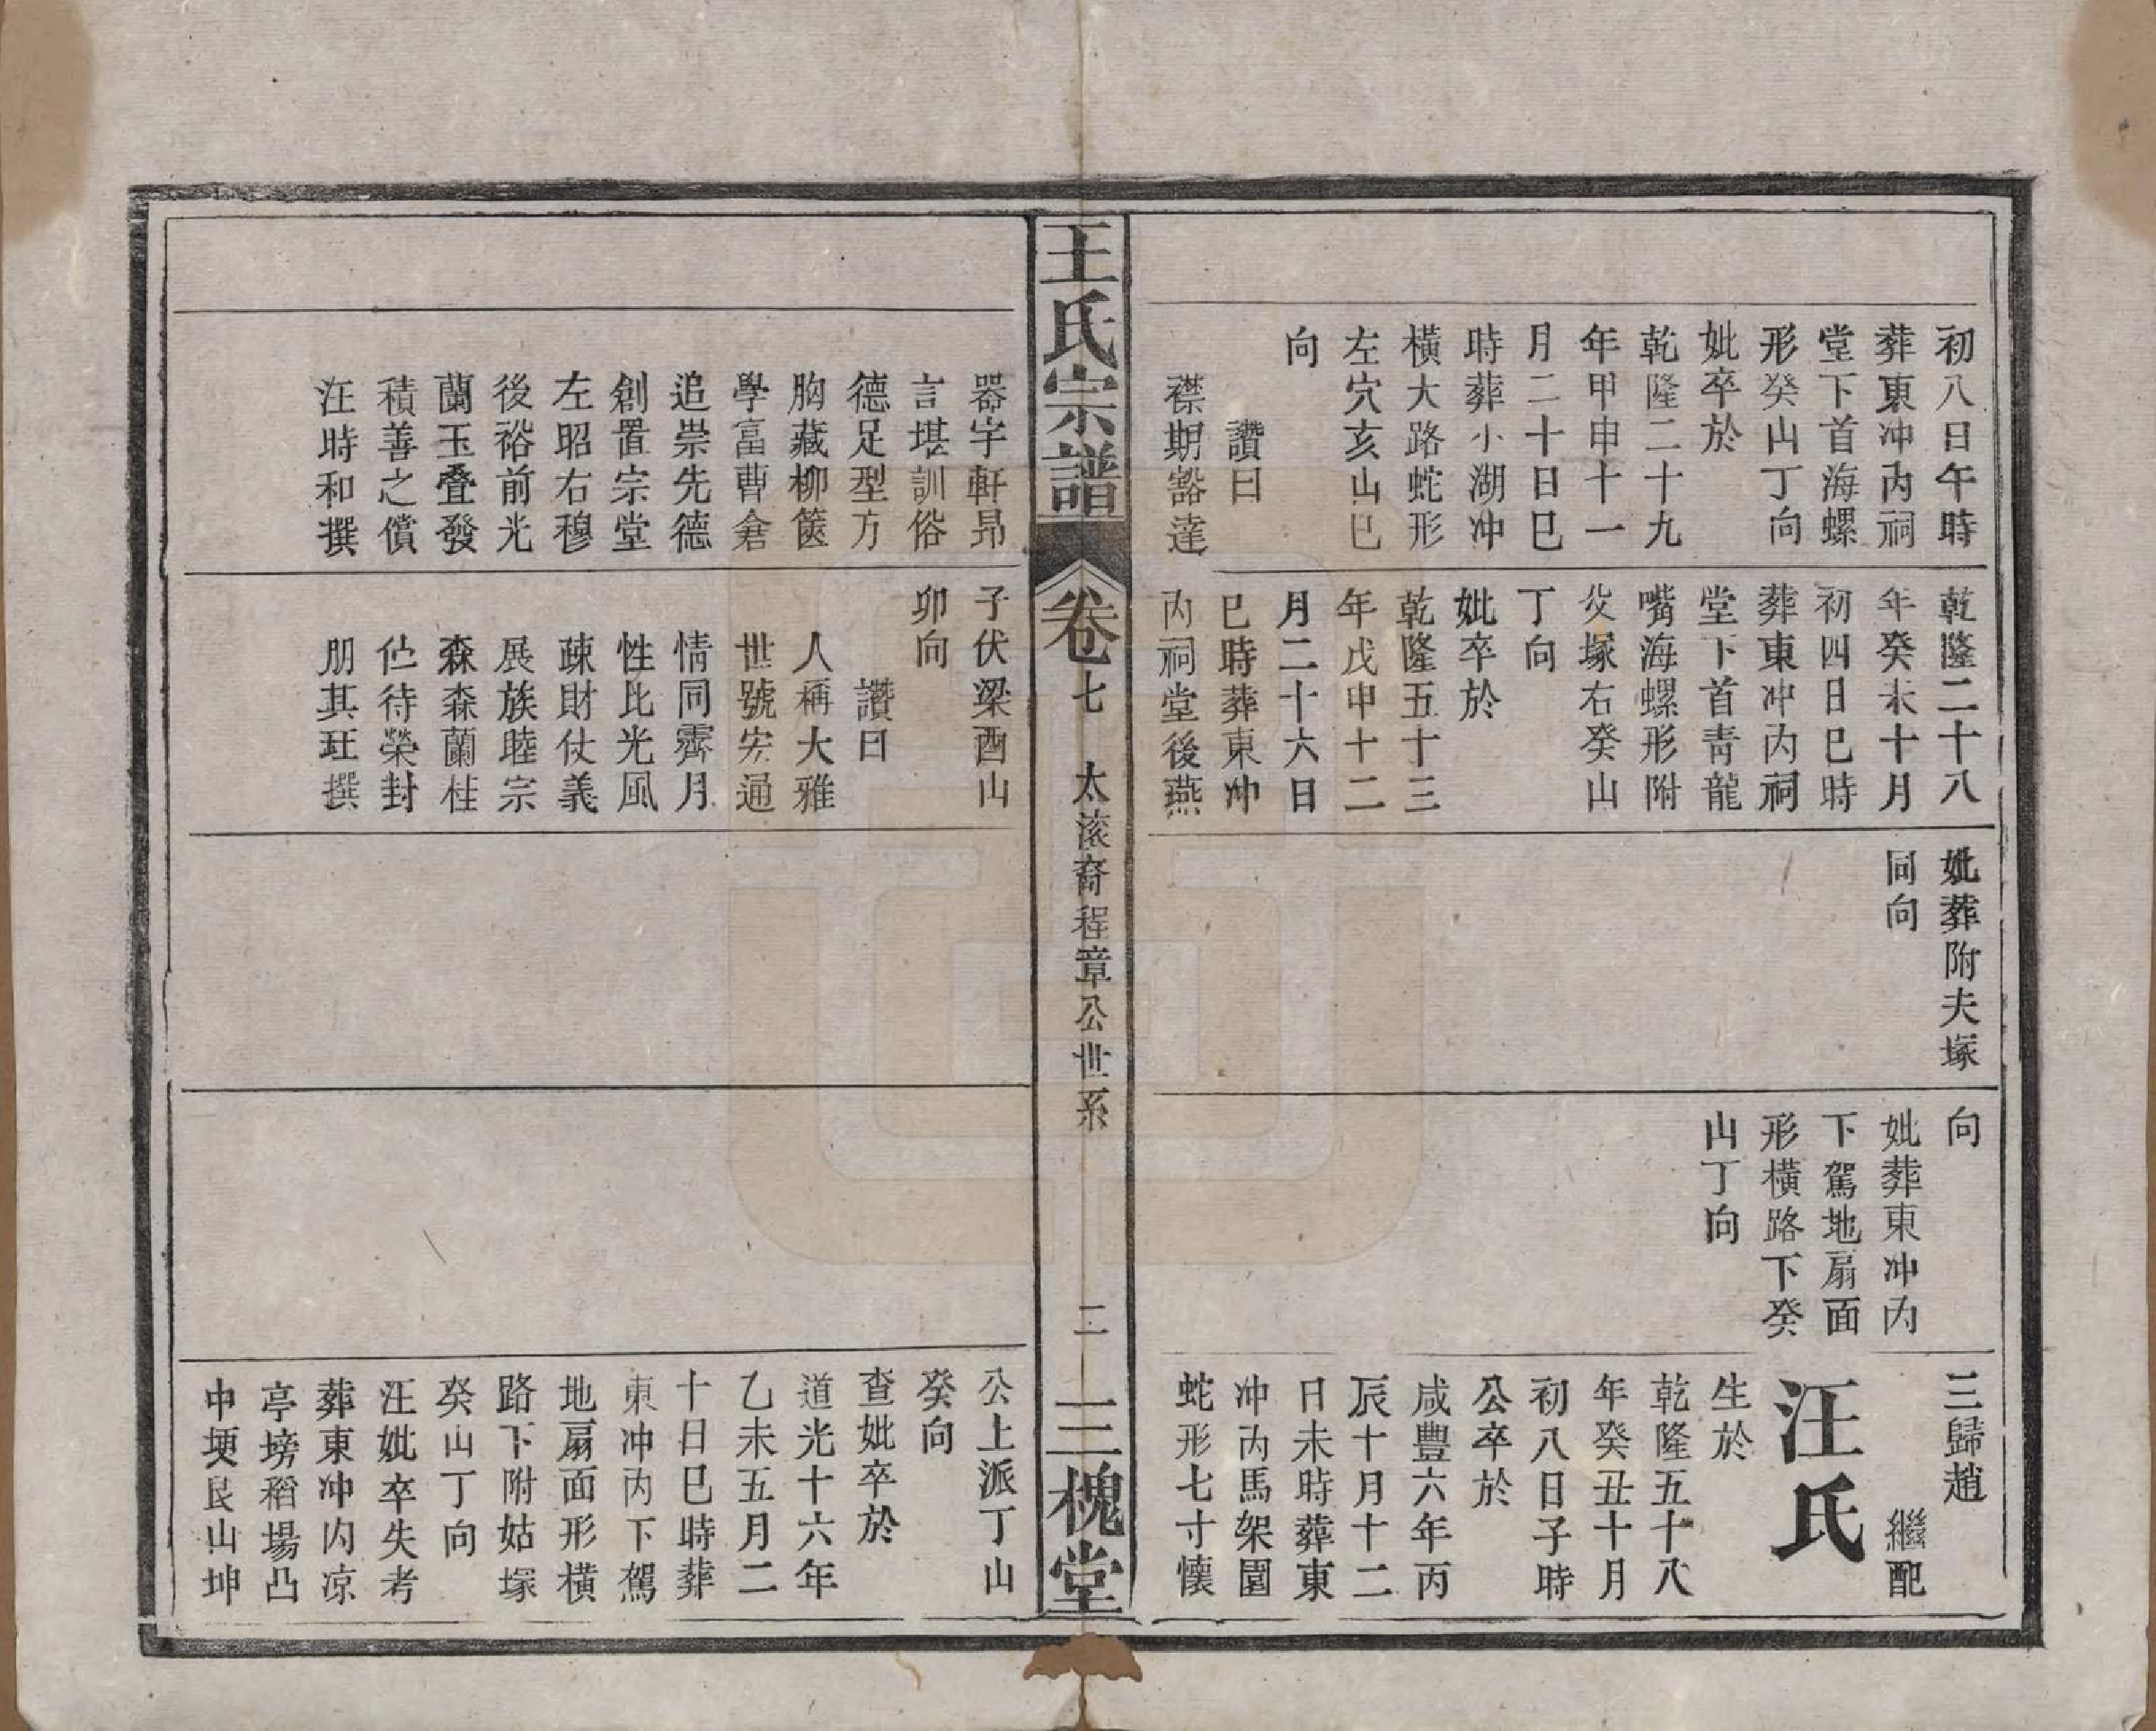 初八日午時
葬東冲內祠
堂下首海螺
形癸山丁向
妣卒於
乾隆二十九
年甲申十一
月二十日巳
時葬小湖冲
橫大路蛇形
左穴亥山巳
向
讚曰
襟期豁達
乾隆二十八
年癸未十月
初四日巳時
葬東冲內祠
堂下首青龍
嘴海螺形附
父塚右癸山
丁向
妣卒於
乾隆五十三
年戊申十二
月二十六日
巳時葬東冲
內祠堂後燕
妣葬附夫塚
同向
向
妣葬東冲內
下駕地扇面
形橫路下癸
山丁向
三歸趙
繼配
汪氏
生於
乾隆五十八
年癸丑十月
初八日子時
公卒於
咸豐六年丙
辰十月十二
日未時葬東
冲內馬架園
蛇形七寸懷
王氏宗譜
卷七
太滚裔程章公世系
二
三槐堂
器宇軒昂
言堪訓俗
德足型方
胸藏柳篋
學富曹倉
追崇先德
創置宗堂
左昭右穆
後裕前光
蘭玉叠發
積善之償
汪時和撰
子伏梁酉山
卯向
讚曰
人稱大雅
世號宏通
情同霽月
性比光風
疎財仗義
展族睦宗
森森蘭桂
佇待榮封
朋其玨撰
公上派丁山
癸向
查妣卒於
道光十六年
乙未五月二
十日巳時葬
東冲內下駕
地扇面形橫
路下附姑塚
癸山丁向
汪妣卒失考
葬東冲內凉
亭塝稻場凸
中埂艮山坤